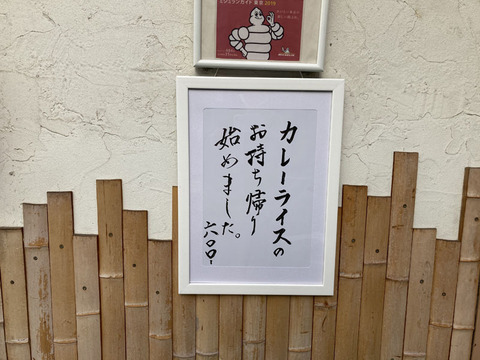 ミシュランガイド東京 2019
カレーライスの
お持ち帰り
始めました。
六〇〇-